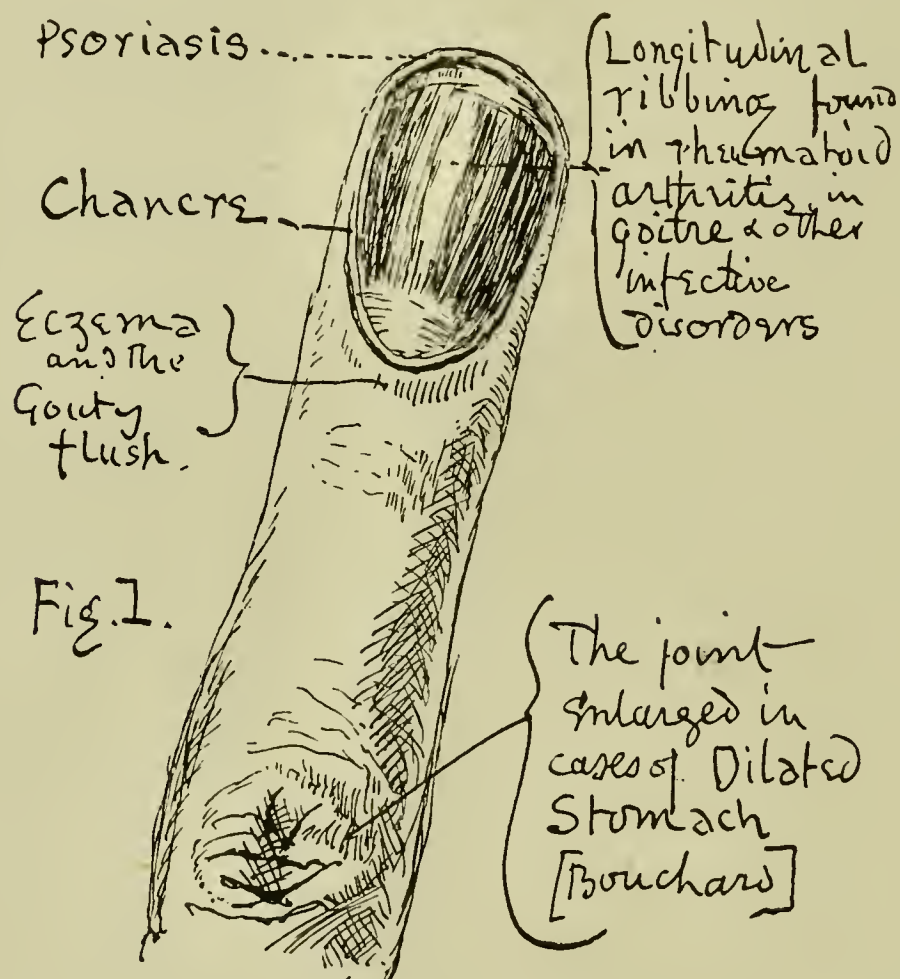 Psoriasis
Longitudinal
ribbing found
in rheumatoid
arthritis, in
goitre & other
infective
disorders
Chancre
Eczema
and the
Gouty
flush.
Fig. 1.
The joint
enlarged in
cases of Dilated
Stomach
[Bouchard]